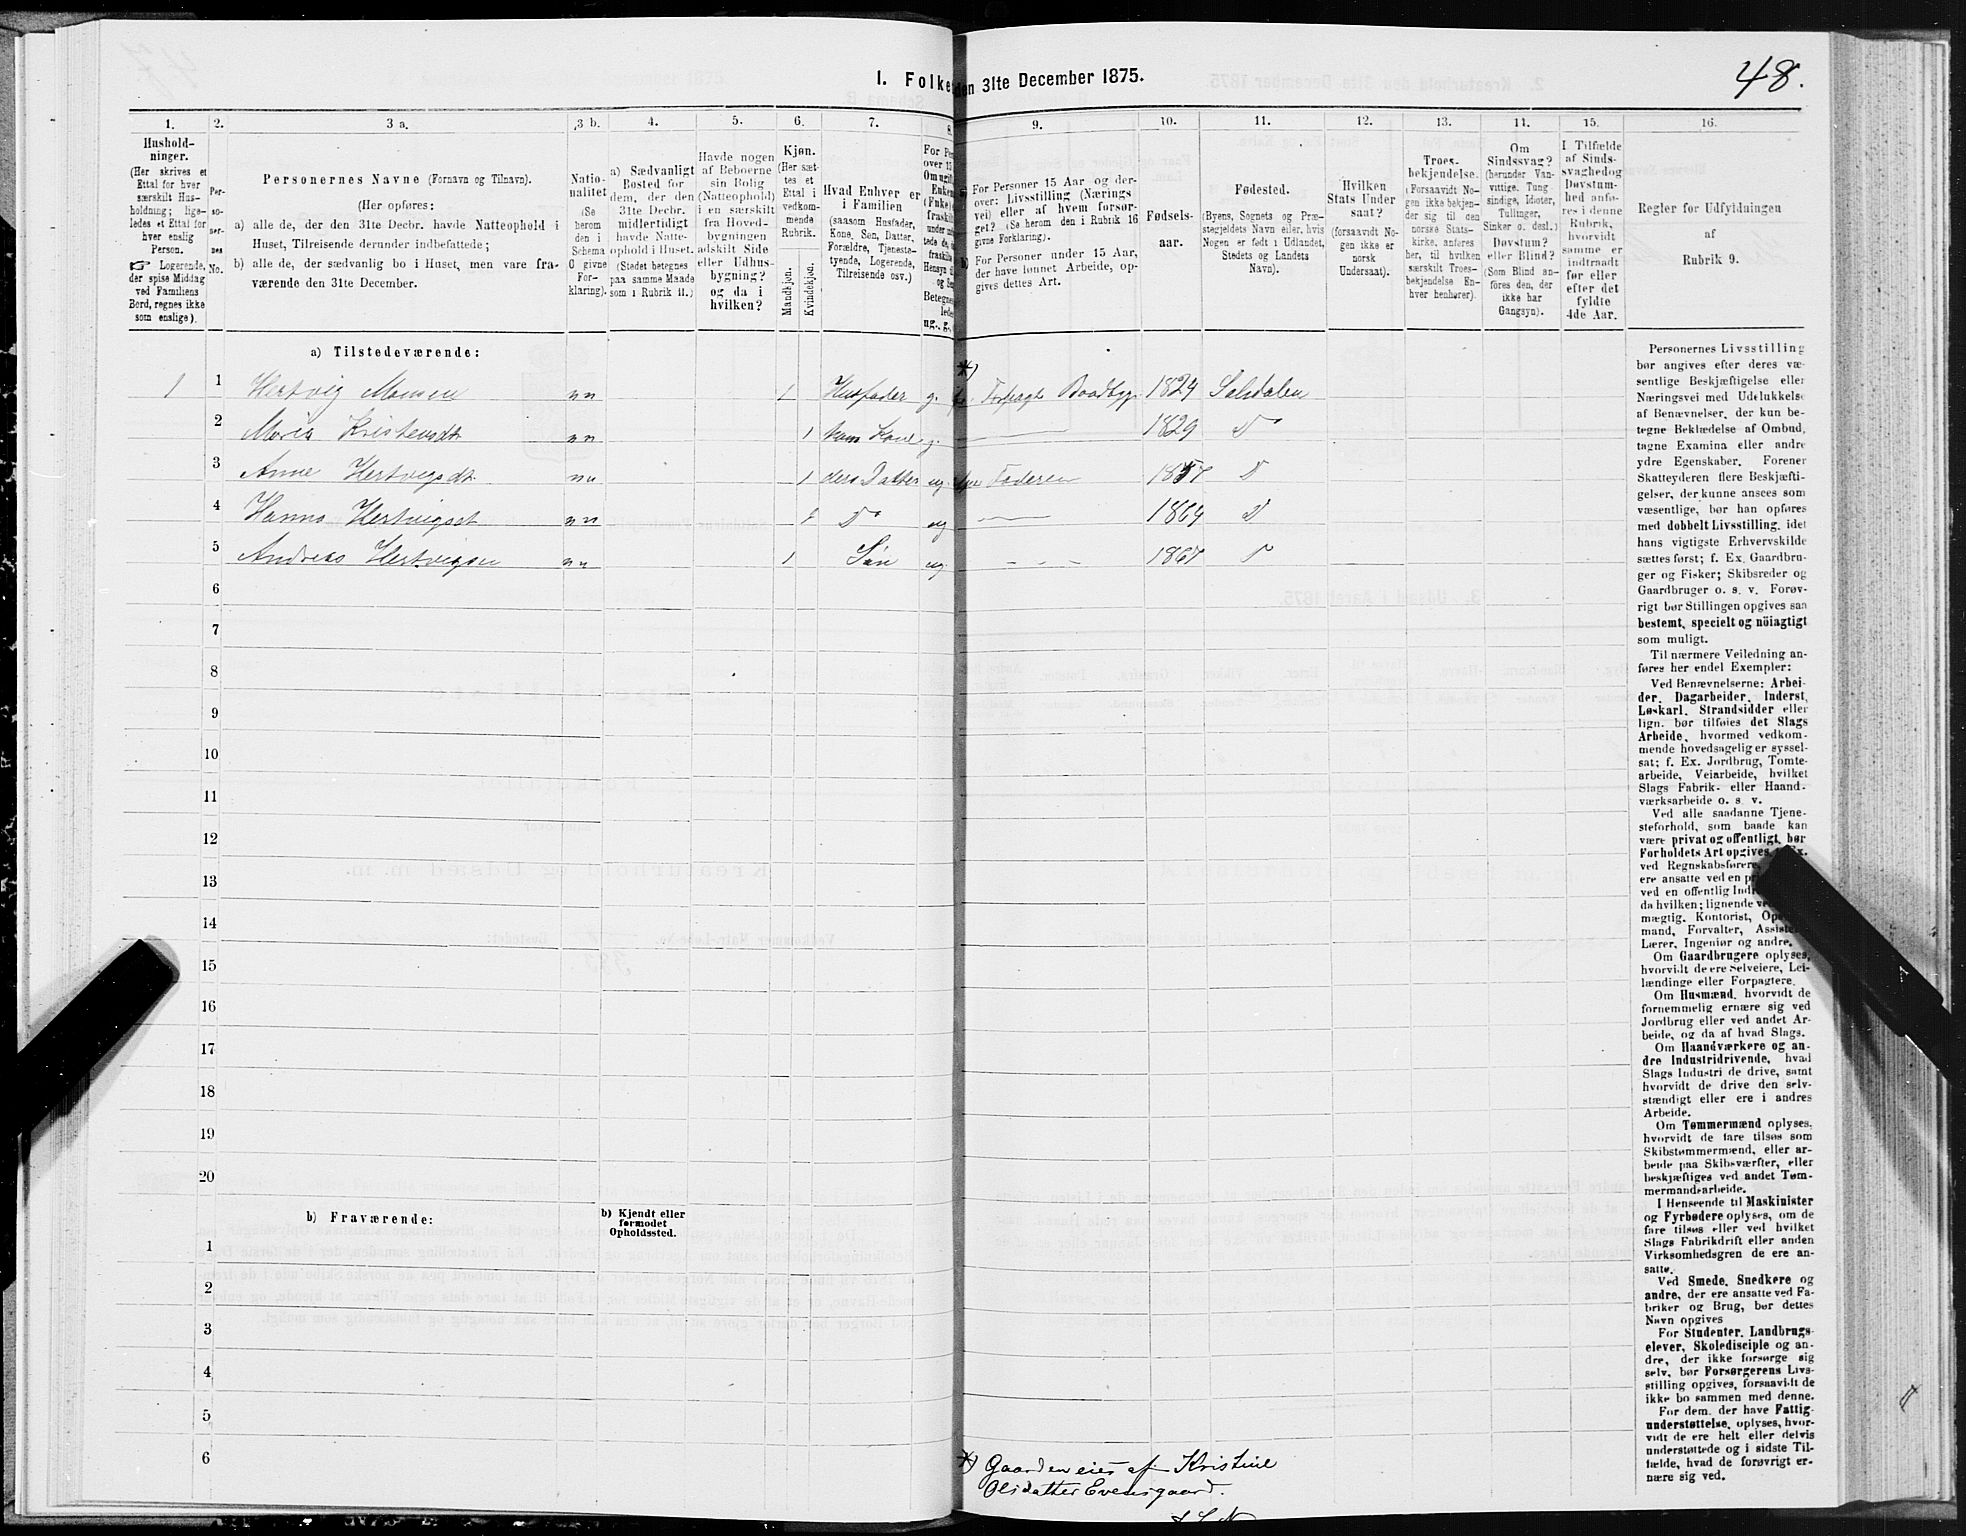 48.
I. Folke den 31te December 1875.
1. 2. 3 a. 3 b. 4. 5. 6. 7. 8. 9. 10. 11. 12. 13. 14. 15. 16.
Hushold-
ninger.
(Her skrives et
Ettal for hver
særskilt Hus-
holdning; lige-
ledes et Ettal for
hver enslig
Person.
☞ Logerende,
der spise Middag
ved Familiens
Bord, regnes ikke
som enslige).
Per-
so-
ner-
nes
No.
Personernes Navne (Fornavn og Tilnavn).
(Her opføres:
a) alle de, der den 31te Decbr. havde Natteophold i
Huset, Tilreisende derunder indbefattede;
b) alle de, der sædvanlig bo i Huset, men vare fra-
værende den 31te December.
Natio-
nalitet
(Se
herom
den i
Schema
C givne
For-
klaring).
a) Sædvanligt
Bosted for
dem, der den
31te Decbr.
midlertidigt
havde Natte-
ophold i Huset.
(Stedet betegnes
paa samme Maade
som i Rubrik 11.)
Havde nogen
af Beboerne
sin Bolig
(Natteophold)
i en særskilt
fra Hoved-
bygningen
adskilt Side
eller Udhus-
bygning?
og da i
hvilken?
Kjøn.
(Her sæt-
tes et
Ettal i
vedkom-
mende
Rubrik.
Mandkjøn.
Kvindekjøn.
Hvad Enhver er
i Familien
(saasom Husfader,
Kone, Søn, Datter,
Forældre, Tjeneste-
tyende, Logerende,
Tilreisende osv.)
For Pe
over 15
Om ugift
Enken
(Enke)
fraskilt
ug., g.,
a) For Personer 15 Aar og der-
over: Livsstilling (Nærings-
vei) eller af hvem forsør-
get? (Se herom den i Rubrik 16
givne Forklaring).
b) For Personer under 15 Aar,
der have lønnet Arbeide, op-
gives dettes Art.
Fødsels-
aar.
Fødested.
(Byens, Sognets og Præ-
stegjeldets Navn eller, hvis
Nogen er født i Udlandet,
Stedets og Landets
Navn).
Hvilken
Stats Under
saat?
(forsaavidt No-
gen ikke er
norsk
Undersaat).
Troes-
bekjendelse.
(Forsaavidt No-
gen ikke bekjen-
der sig til den
norske Stats-
kirke, anføres
her, til hvilken
særskilt Troes-
bekjendelse En-
hver henhører).
Om
Sindssvag?
(herunder Van-
vittige, Tung
sindige, Idioter,
Tullinger,
Sinker o. desl.)
Døvstum?
eller Blind?
(Som Blind an-
føres den, der
ikke har
Gangsyn).
I Tilfælde
af Sinds-
svaghed og
Døvstum-
hed anfø-
res i denne
Rubrik,
hvorvidt
samme er
indtraadt
før eller
efter det
fyldte
4de Aar.
Regler for Udfyldningen
af
Rubrik 9.
a) Tilstedeværende:
*)
1 1 Hertvig Monsen nn 1 Husfader g. Baadbyg. 1824 Saltdalen
2 Maria Kristensdt nn 1 hans Kone g. — 1829 Do
3 Anne Hertvigsdt. nn 1 deres Datter ug. Faderen 1857 D
4 Hanna Hertvigsdt nn 1 Do ug — 1864 D
5 Andreas Hertvigsen nn 1 Søn ug. - - - 1867 D
6
7
8
9
10
11
12
13
14
15
16
17
18
19
20
b) Fraværende:
b) Kjendt eller
formodet
Opholdssted.
1
2
3
4
5
6
*) Gaarden eies af Kristine
Olsdatter Evensgaard.
Personernes Livsstilling
bør angives efter deres væ-
sentlige Beskjæftigelse eller
Næringsvei med Udelukkelse
af Benævnelser, der kun be-
tegne Beklædelse af Ombud,
tagne Examina eller andre
ydre Egenskaber. Forener
Skatteyderen flere Beskjæfti-
gelser, der kunne ansees som
væsentlige, bør han opføres
med dobbelt Livsstilling, idet
hans vigtigste Erhvervskilde
sættes først; f. Ex. Gaardbru-
ger og Fisker; Skibsreder og
Gaardbruger o. s. v. Forøv-
rigt bør Stillingen opgives saa
bestemt, specielt og nøiagtigt
som muligt.
Til nærmere Veiledning an-
føres her endel Exempler:
Ved Benævnelserne: Arbei-
der, Dagarbeider, Inderst,
Løskarl, Strandsidder eller
lign. bør tilføies det Slags
Arbeide, hvormed vedkom-
mende hovedsagelig er syssel-
sat; f. Ex. Jordbrug, Tomte-
arbeide, Veiarbeide, hvilket
Slags Fabrik- eller Haand-
værksarbeide o. s. v.
Ved alle saadanne Tjene-
steforhold, som baade kan
være privat og offentligt, bør
Forholdets Art opgives, f. Ex.
ved Regnskabsførere,
ere ansatte ved en pri
ved en offentlig Indr
da hvilken; lignende ved
mægtig, Kontorist, Ops
mand, Forvalter, Assiste
Lærer, Ingeniør og andre.
Om Gaardbrugere oplyses,
hvorvidt de ere Selveiere, Lei-
lændinge eller Forpagtere.
Om Husmænd, hvorvidt de
fornemmelig ernære sig ved
Jordbrug eller ved andet Ar-
beide, og da af hvad Slags.
Om Haandværkere og an-
dre Industridrivende, hvad
Slags Industri de drive, samt
hvorvidt de drive den selv-
stændigt eller ere i andres
Arbeide.
Om Tømmermænd oplyses,
hvorvidt de fare tilsøs som
Skibstømmermænd, eller ar-
beide paa Skibsværfter, eller
beskjæftiges ved andet Tøm-
mermandsarbeide.
I Henseende til Maskinister
og Fyrbødere oplyses, om de
fare tilsøs eller ved hvilket
Slags Fabrikdrift eller anden
Virksomhedsgren de ere an-
satte.
Ved Smede, Snedkere og
andre, der ere ansatte ved Fa-
briker og Brug, bør dettes
Navn opgives
For Studenter, Landbrugs-
elever, Skoledisciple og an-
dre, der ikke forsørge sig
selv, bør Forsørgerens Livs-
stilling opgives, forsaavidt de
ikke bo sammen med denne.
For dem, der have Fattig-
understøttelse, oplyses, hvor-
vidt de ere helt eller delvis
understøttede og i sidste Til-
fælde, hvad de forøvrigt er-
nære sig ved.